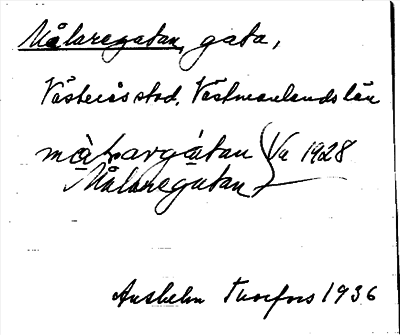 Målaregatan, gata,
Västerås stad, Västmanlands län
màl̥argàtan } Va 1928
Målaregatan
Anshelm 1936